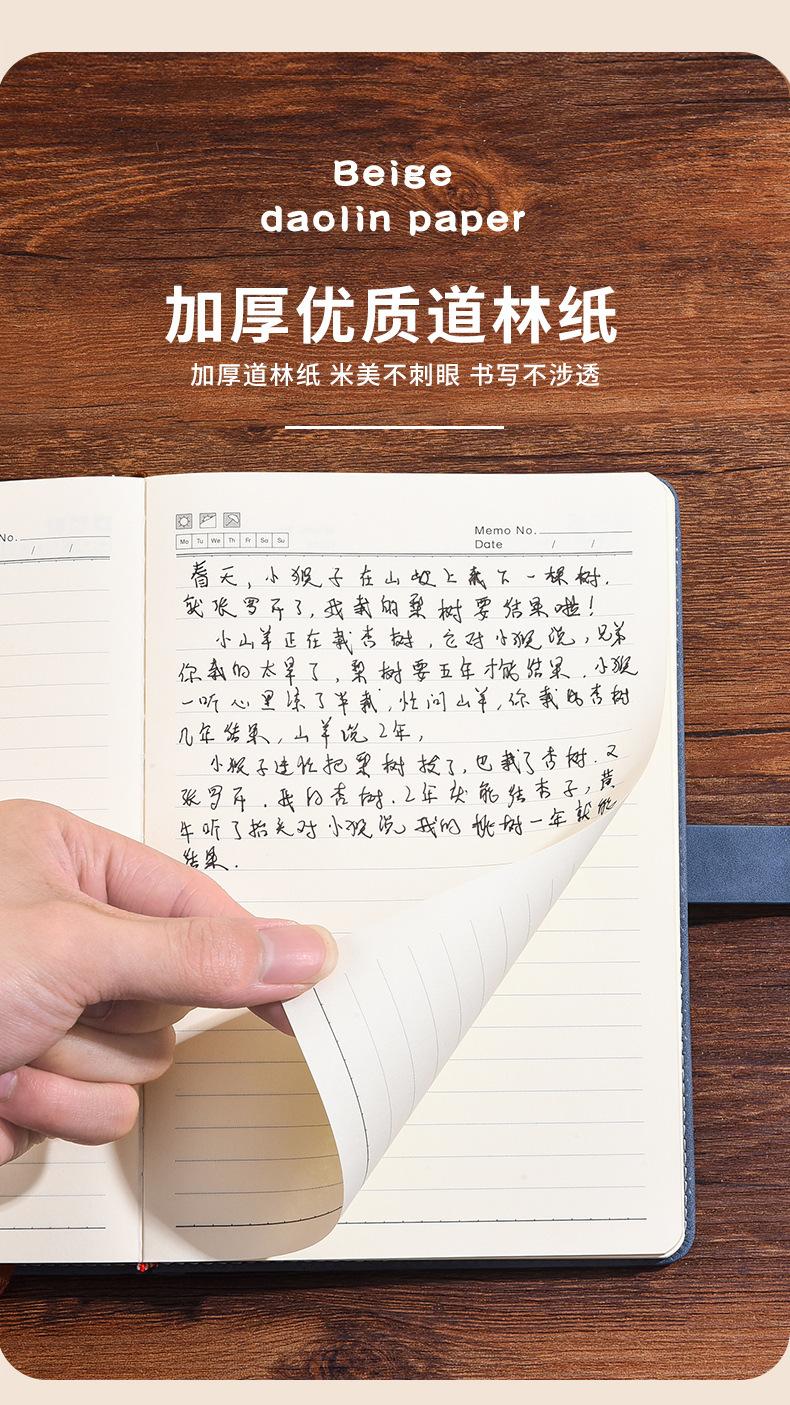 Beige
daolin paper
加厚优质道林纸
加厚道林纸 米美不刺眼 书写不涉透
No.
/ /
Mo Tu We Th Fr Sa Su
Memo No.
Date / /
春天，小猴子在山坡上栽下一棵树.
就张罗开了，我栽的梨树要结果啦！
小山羊正在栽杏树，它对小猴说，兄弟
你栽的太早了，梨树要五年才能结果.小猴
一听心里凉了半截，忙问山羊，你栽的杏树
几年结果，山羊说2年，
小猴子连忙把梨树拔了，也栽了杏树.又
张罗开.我的杏树.2年就能结杏子，黄
牛听了抬头对小猴说我的桃树一年就能
结果.